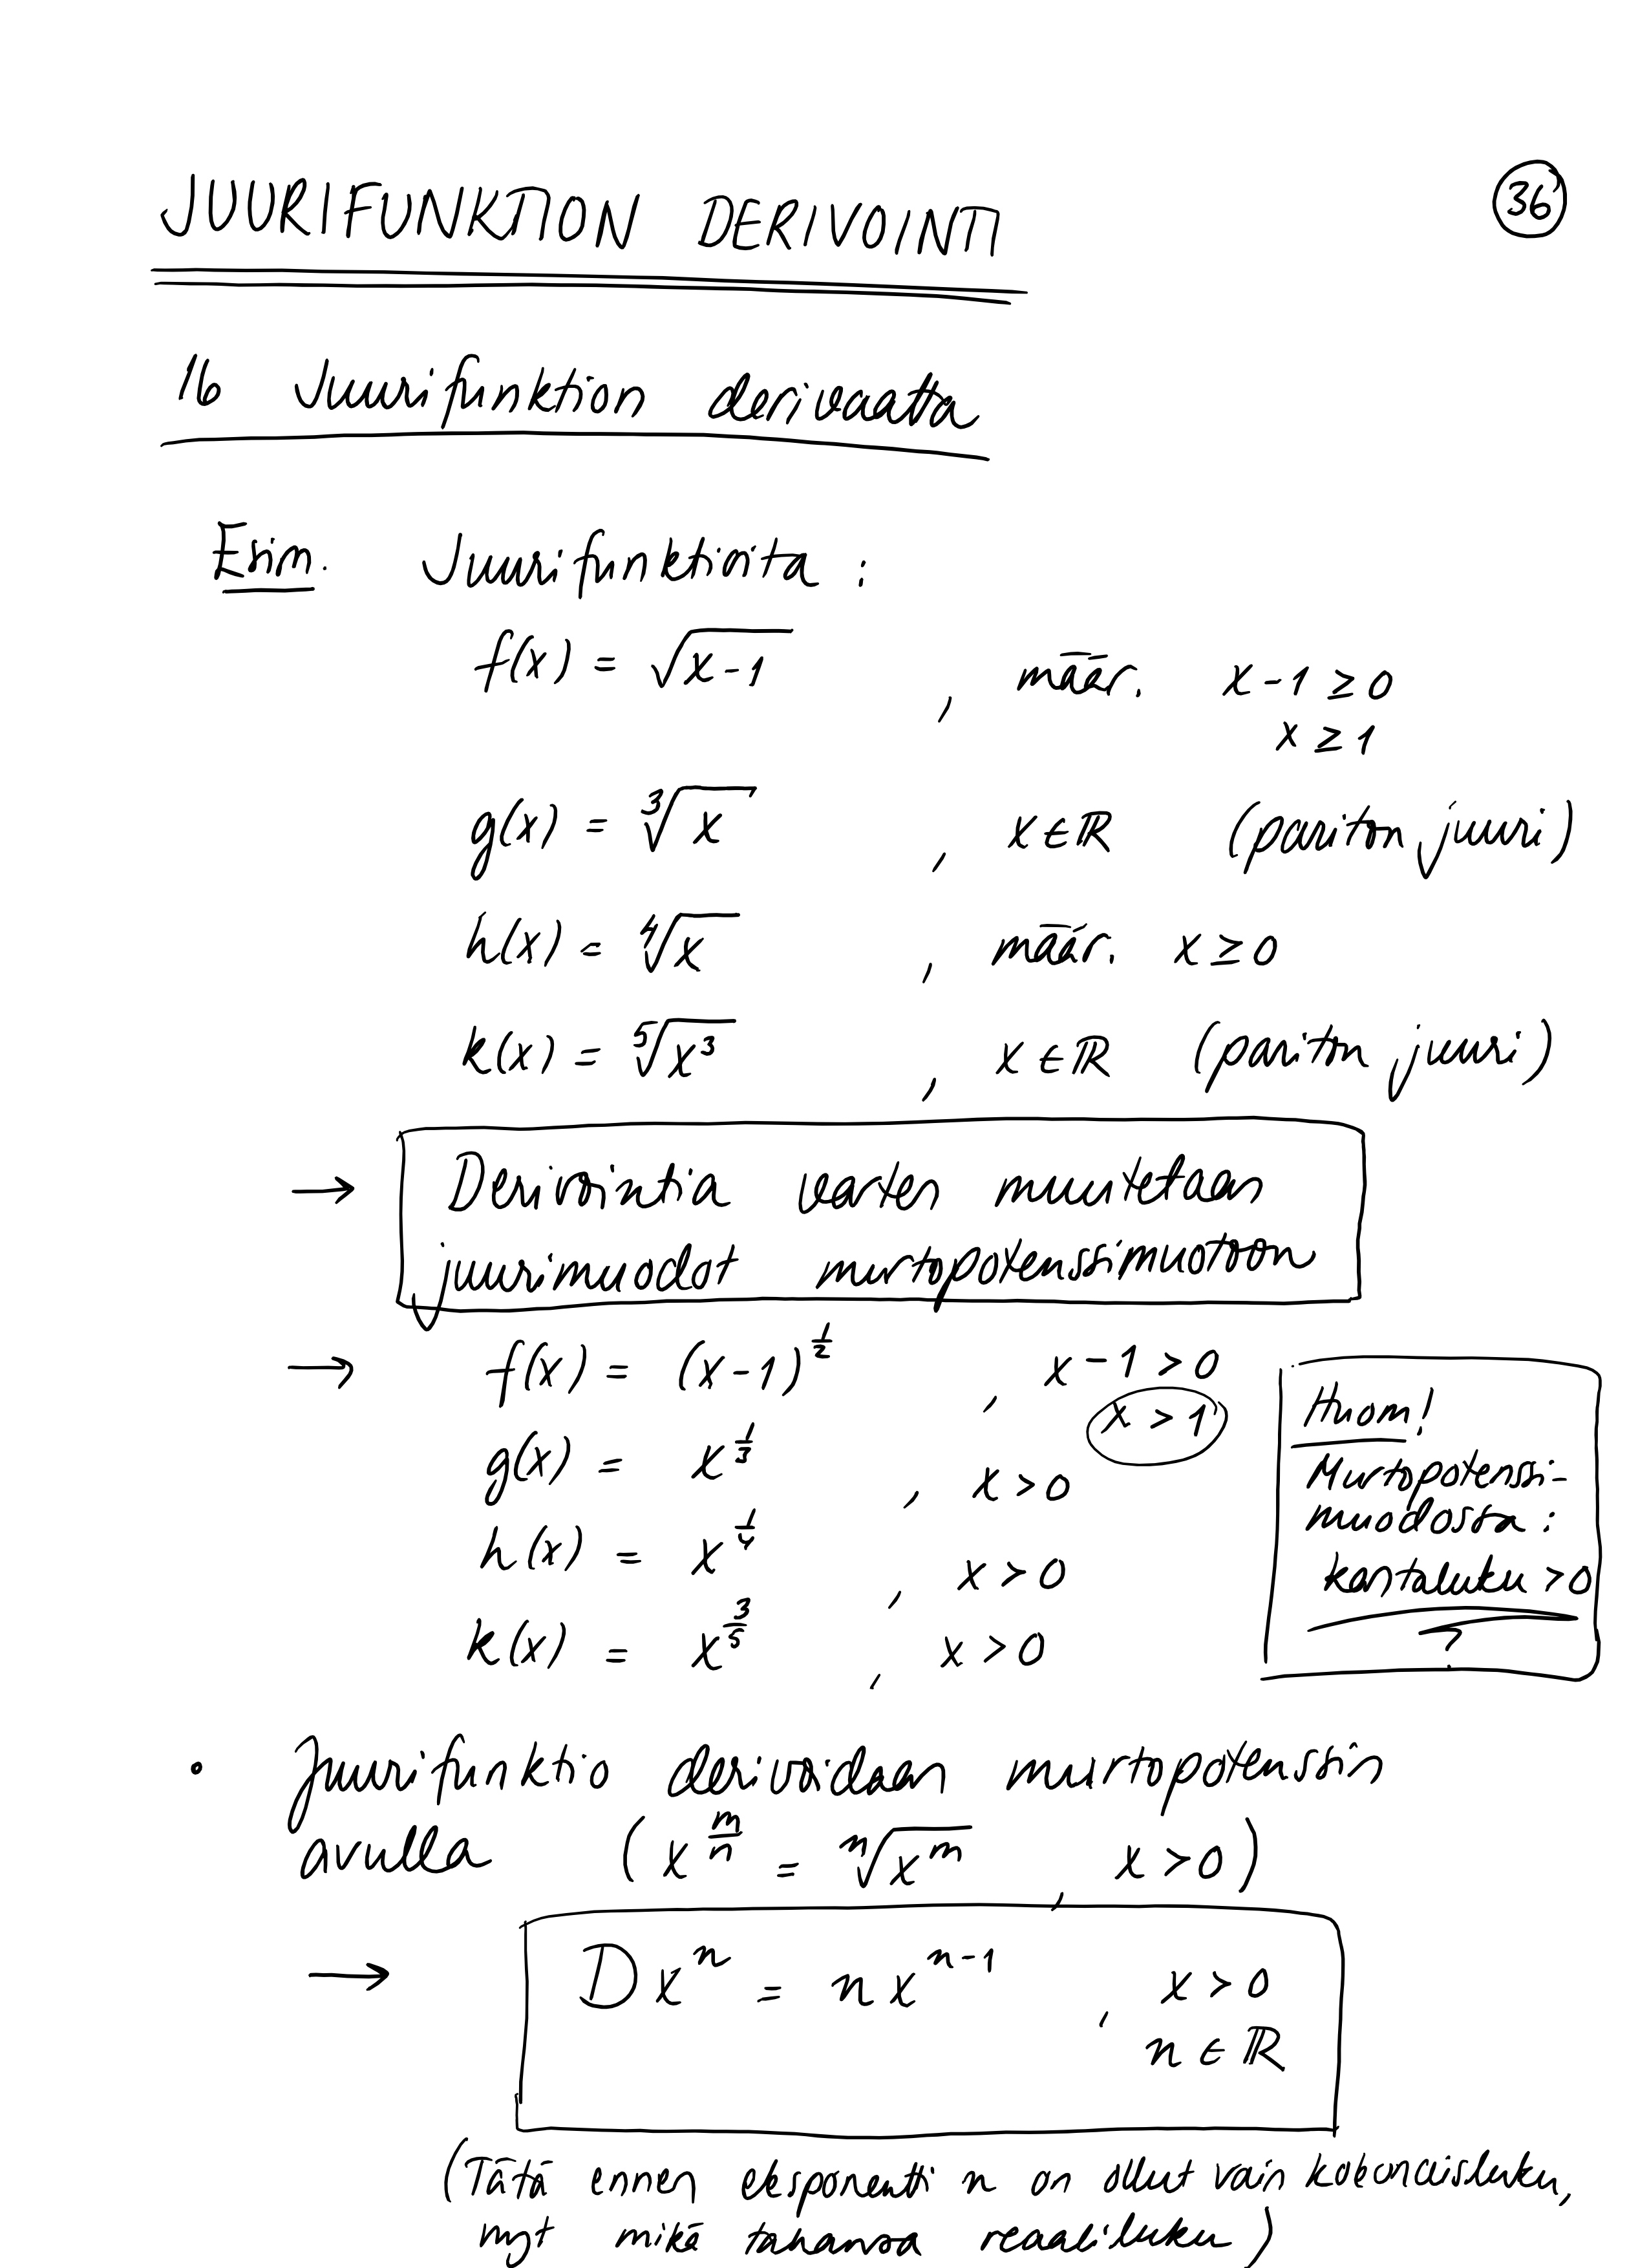 JUURIFUNKTION DERIVOINTI
36
16 Juurifunktion derivaatta
Esim. Juurifunktioita :
f(x) = √(x-1) , määr. x-1 ≥ 0
x ≥ 1
g(x) = ³√x , x ∈ ℝ (pariton juuri)
h(x) = ⁴√x , määr. x ≥ 0
k(x) = ⁵√x³ , x ∈ ℝ (pariton juuri)
→ Derivointia varten muutetaan
juurimuodot murtopotenssimuotoon
→ f(x) = (x-1)^(1/2) , x-1 > 0
x > 1
g(x) = x^(1/3) , x > 0
h(x) = x^(1/4) , x > 0
k(x) = x^(3/5) , x > 0
Huom!
Murtopotenssi-
muodossa :
kantaluku > 0
?
• Juurifunktio derivoidaan murtopotenssin
avulla (x^(m/n) = ⁿ√x^m , x > 0)
→ D x^n = n x^(n-1) , x > 0
n ∈ ℝ
(Tätä ennen eksponentti n on ollut vain kokonaisluku,
nyt mikä tahansa reaaliluku)